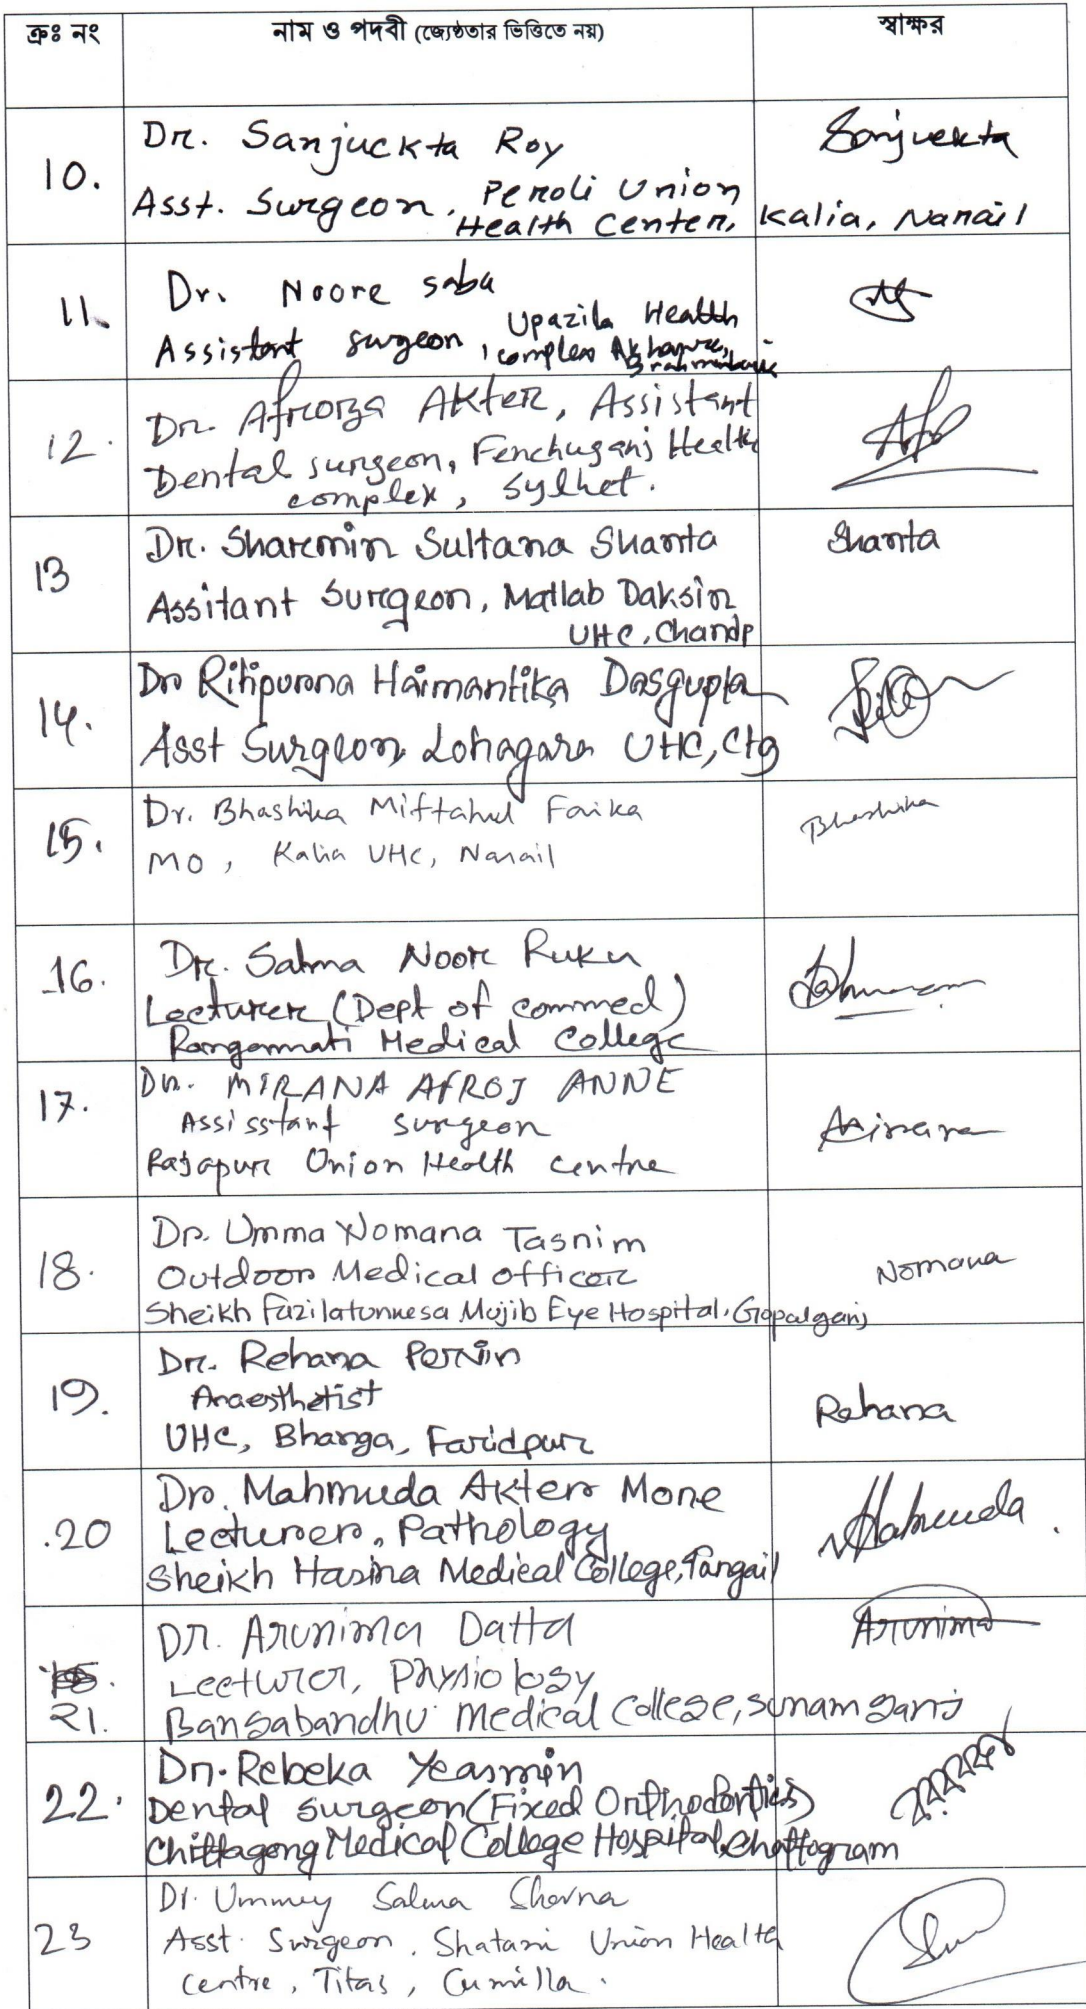 ক্রঃ নং নাম ও পদবী (জ্যেষ্ঠতার ভিত্তিতে নয়) স্বাক্ষর
10. Dr. Sanjuckta Roy Sanjuckta
Asst. Surgeon, Peroli Union
Health Center, Kalia, Narail
11. Dr. Noore saba
Assistant surgeon, Upazila Health
complex Akhaura,
12. Dr. Afroza Akter, Assistant
Dental surgeon, Fenchuganj Health
complex, Sylhet.
13 Dr. Sharmin Sultana Shanta Shanta
Assitant Surgeon, Matlab Daksin
UHC, Chandp
14. Dr Ritiporna Haimantika Dasgupta
Asst Surgeon, Lohagara UHC, Ctg
15. Dr. Bhashika Miftahul Farika Bhashika
MO, Kalia UHC, Narail
16. Dr. Salma Noor Ruku
Lecturer (Dept of commed)
Rangamati Medical College
17. Dr. MIRANA AFROJ ANNE Mirana
Assisstant surgeon
Rajapur Union Health centre
18. Dr. Umma Nomana Tasnim Nomana
Outdoor Medical officer
Sheikh Fazilatunnesa Mujib Eye Hospital, Gopalganj
19. Dr. Rehana Pervin
Anaesthetist Rehana
UHC, Bhanga, Faridpur
20 Dr. Mahmuda Akter Mone Mahmuda
Lecturer, Pathology
Sheikh Hasina Medical College, Tangail
Dr. Arunima Datta Arunima
Lecturer, Physiology
21. Bangabandhu Medical College, Sunamganj
22. Dr. Rebeka Yeasmin
Dental surgeon (Fixed Orthodontics)
Chittagong Medical College Hospital, Chattogram
23 Dr. Ummey Salma Shorna
Asst. Surgeon, Shatani Union Health
Centre, Titas, Cumilla.